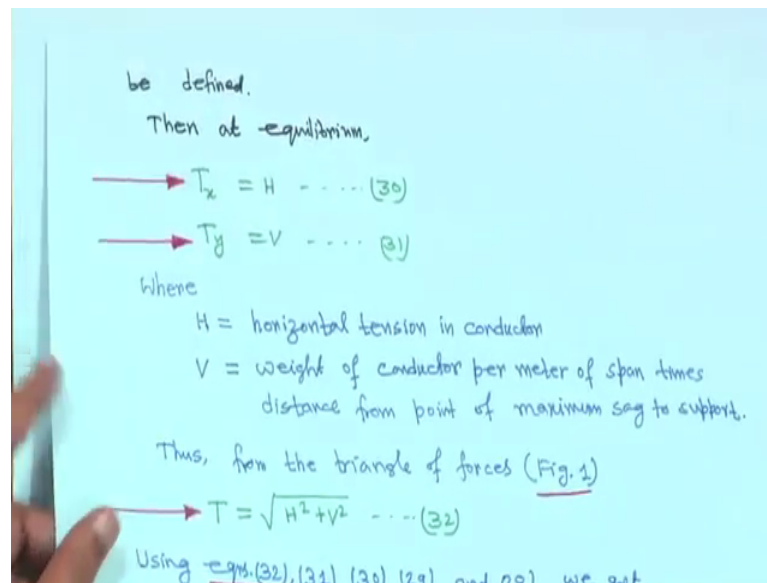 be defined.
Then at equilibrium,
Tx = H - ..... (30)
Ty = V - .... (31)
Where
H = horizontal tension in conductor
V = weight of conductor per meter of span times
distance from point of maximum sag to support.
Thus, from the triangle of forces (Fig. 1)
T = √H²+V² - ... (32)
Using eqns.(32), (31), (30), (29) and we get